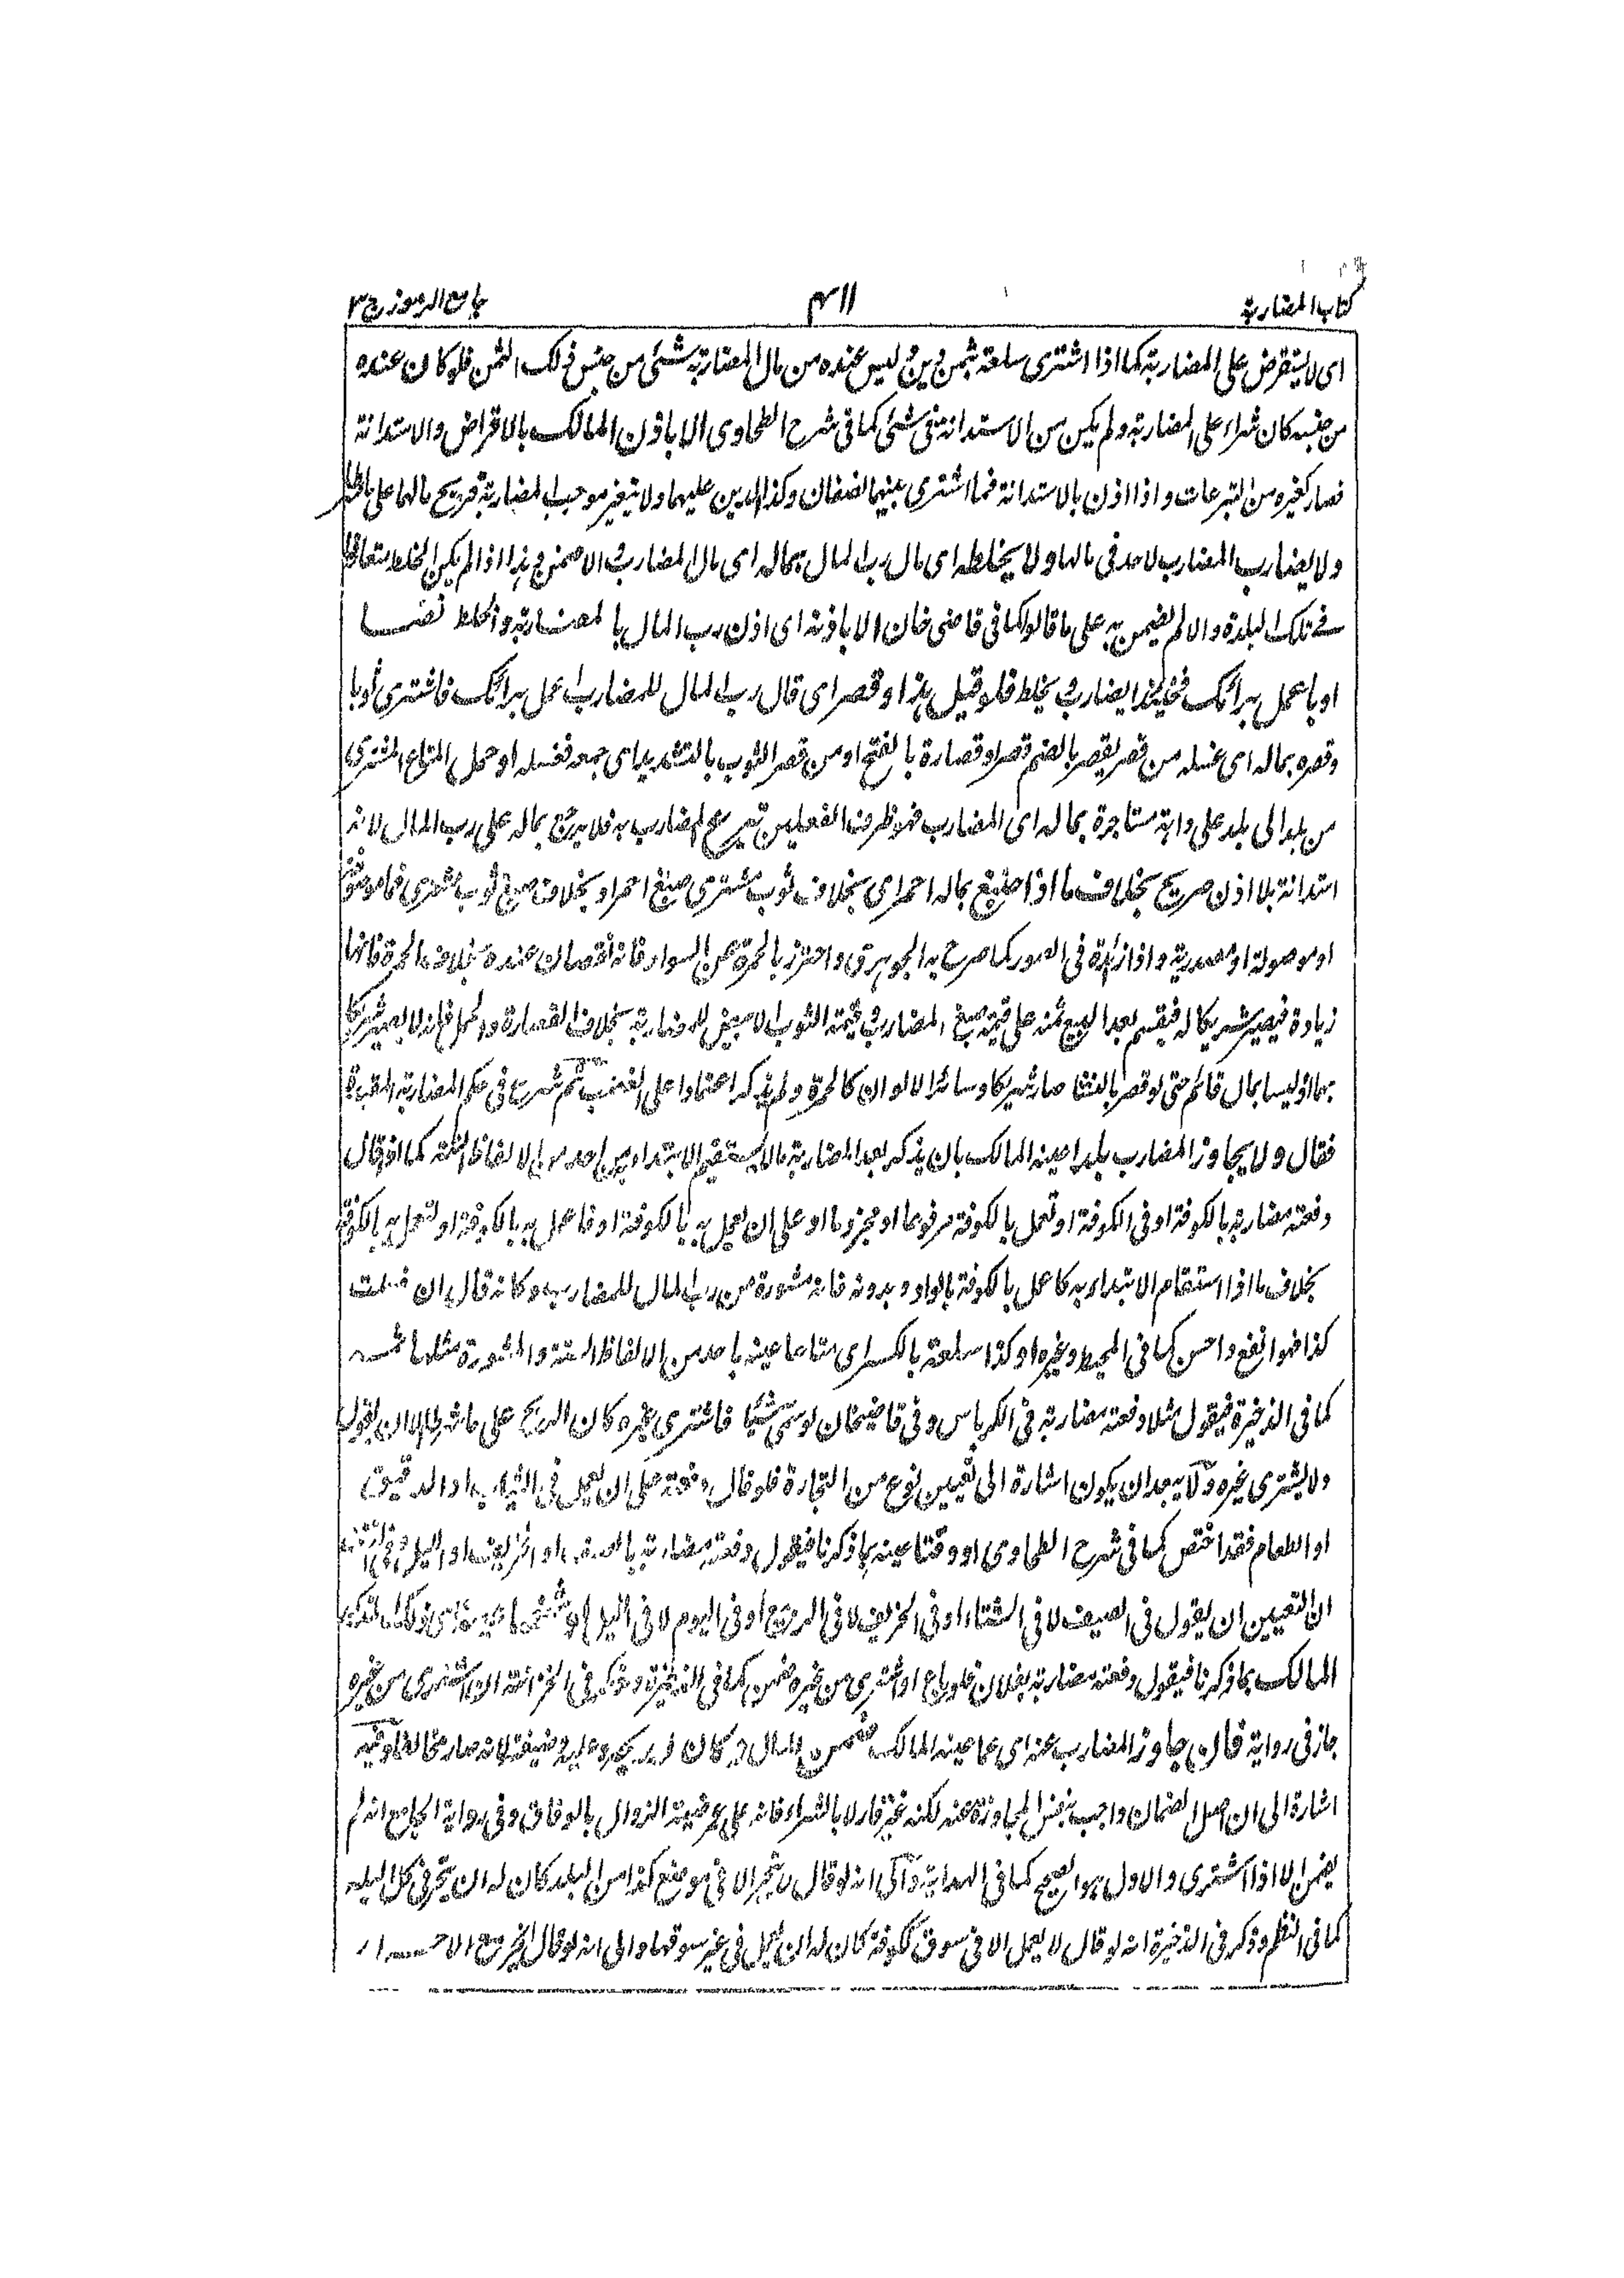 كتاب المضاربة
٤١١
جامع الرموز ج ٣
اى لا يستقرض على المضاربة كما اذا اشترى سلعة بثمن دين وليس عنده من مال المضاربة شئ من جنس ذلك الثمن فلو كان عنده
من جنسه كان شراء على المضاربة ولم يكن من الاستدانة فى شئ كما فى شرح الطحاوى الا باذن المالك بالاقراض والاستدانة
فصار كغيره من التبرعات و اذا اذن بالاستدانة فما اشترى بينهما نصفان وكذا الدين عليهما ولا يتغير موجب المضاربة فربح مالها على
ولا يضارب المضارب لاحد فى مالها ولا يخلطه اى مال رب المال بماله اى مال المضارب والا ضمن و هذا اذا لم يكن الخلط متعارفا
فى تلك البلدة والا لم يضمن به على ما قالوا كما فى قاضى خان الا باذنه اى اذن رب المال بالمضاربة والخلط نصا
او باعمل برائك فحينئذ يضارب و يخلط فلو قيل هذا و قصر اى قال رب المال للمضارب اعمل برائك فاشترى ثوبا
وقصره بماله اى غسله من قصر يقصر بالضم قصرا وقصارة بالفتح او من قصر الثوب بالتشديد اى جمعه فغسله او حمل المتاع المشترى
من بلد الى بلد على دابة مستاجرة بماله اى المضارب فهو ظرف الفعلين تبرع المضارب به فلا يرجع بماله على رب المال لانه
استدانة بلا اذن صريح بخلاف ما اذا صبغ بماله احمر اى بخلاف ثوب مشترى صبغ احمر او بخلاف صبغ ثوب مشترى فما
او موصولة او مصدرية و اذا زائدة فى الصور كما صرح به الجوهرى واحترز بالحمرة عن السواد فانه نقصان عنده بخلاف الحمرة فانها
زيادة فيصير شريكا له فيقسم بعد البيع ثمنه على قيمة صبغ المضارب و قيمة الثوب الابيض للمضاربة بخلاف القصارة والحمل فانه لا يصير شريكا
بهما اذ ليسا بمال قائم حتى لو قصر بالنشا صار شريكا وسائر الالوان كالحمرة ولم يذكر اعتمادا على الغصب ثم شرع فى حكم المضاربة المقيدة
فقال ولا يجاوز المضارب بلدا عينه المالك بان يذكر بعد المضاربة ما لا يستقيم الابتداء به من احد الالفاظ الستة كما اذا قال
دفعته مضاربة بالكوفة او فى الكوفة او تعمل بالكوفة مرفوعا او مجزوما او على ان تعمل به بالكوفة او فاعمل به بالكوفة او لتعمل به بالكوفة
بخلاف ما اذا استقام الابتداء به كاعمل بالكوفة بالواو و بدونه فانه مشورة من رب المال للمضارب وكانه قال ان فعلت
كذا فهو انفع واحسن كما فى المحيط وغيره او كذا سلعة بالكسر اى متاعا عينه باحد من الالفاظ الستة والمشورة مثلها
كما فى الذخيرة فيقول مثلا دفعته مضاربة فى الكرباس و فى قاضيخان لو سمى شيئا فاشترى غيره كان الربح على ما شرطا الا ان يقول
ولا يشترى غيره ولا يبعد ان يكون اشارة الى تعيين نوع من التجارة فلو قال دفعته على ان تعمل فى الثياب او الدقيق
او الطعام فقد اختص كما فى شرح الطحاوى او وقتا عينه بما ذكرنا فيقول دفعته مضاربة بالصيف او الخريف او الليل
ان التعيين ان يقول فى الصيف لا فى الشتاء او فى الخريف لا فى الربيع او فى اليوم لا فى الليل او شخصا عينه
المالك بما ذكرنا فيقول دفعته مضاربة بفلان فلو باع او اشترى من غيره ضمن كما فى الذخيرة وذكر فى الخزانة ان اشترى من غيره
جاز فى رواية فان جاوز المضارب عنه اى عما عينه المالك ضمن المال و كان لانه صار مخالفا وفيه
اشارة الى ان اصل الضمان واجب بنفس المجاوزة عنه لكنه غير قار الا بالشراء فانه على عرضية الزوال بالوفاق وفى رواية الجامع انه لم
يضمن الا اذا اشترى والاول هو الصحيح كما فى الهداية والى انه لو قال لا تتجر الا فى موضع كذا من البلد كان له ان يتجر فى كل البلد
كما فى النظم وذكر فى الذخيرة انه لو قال لا يعمل الا فى سوق الكوفة كان له ان يعمل فى غير سوقها والى انه لو قال